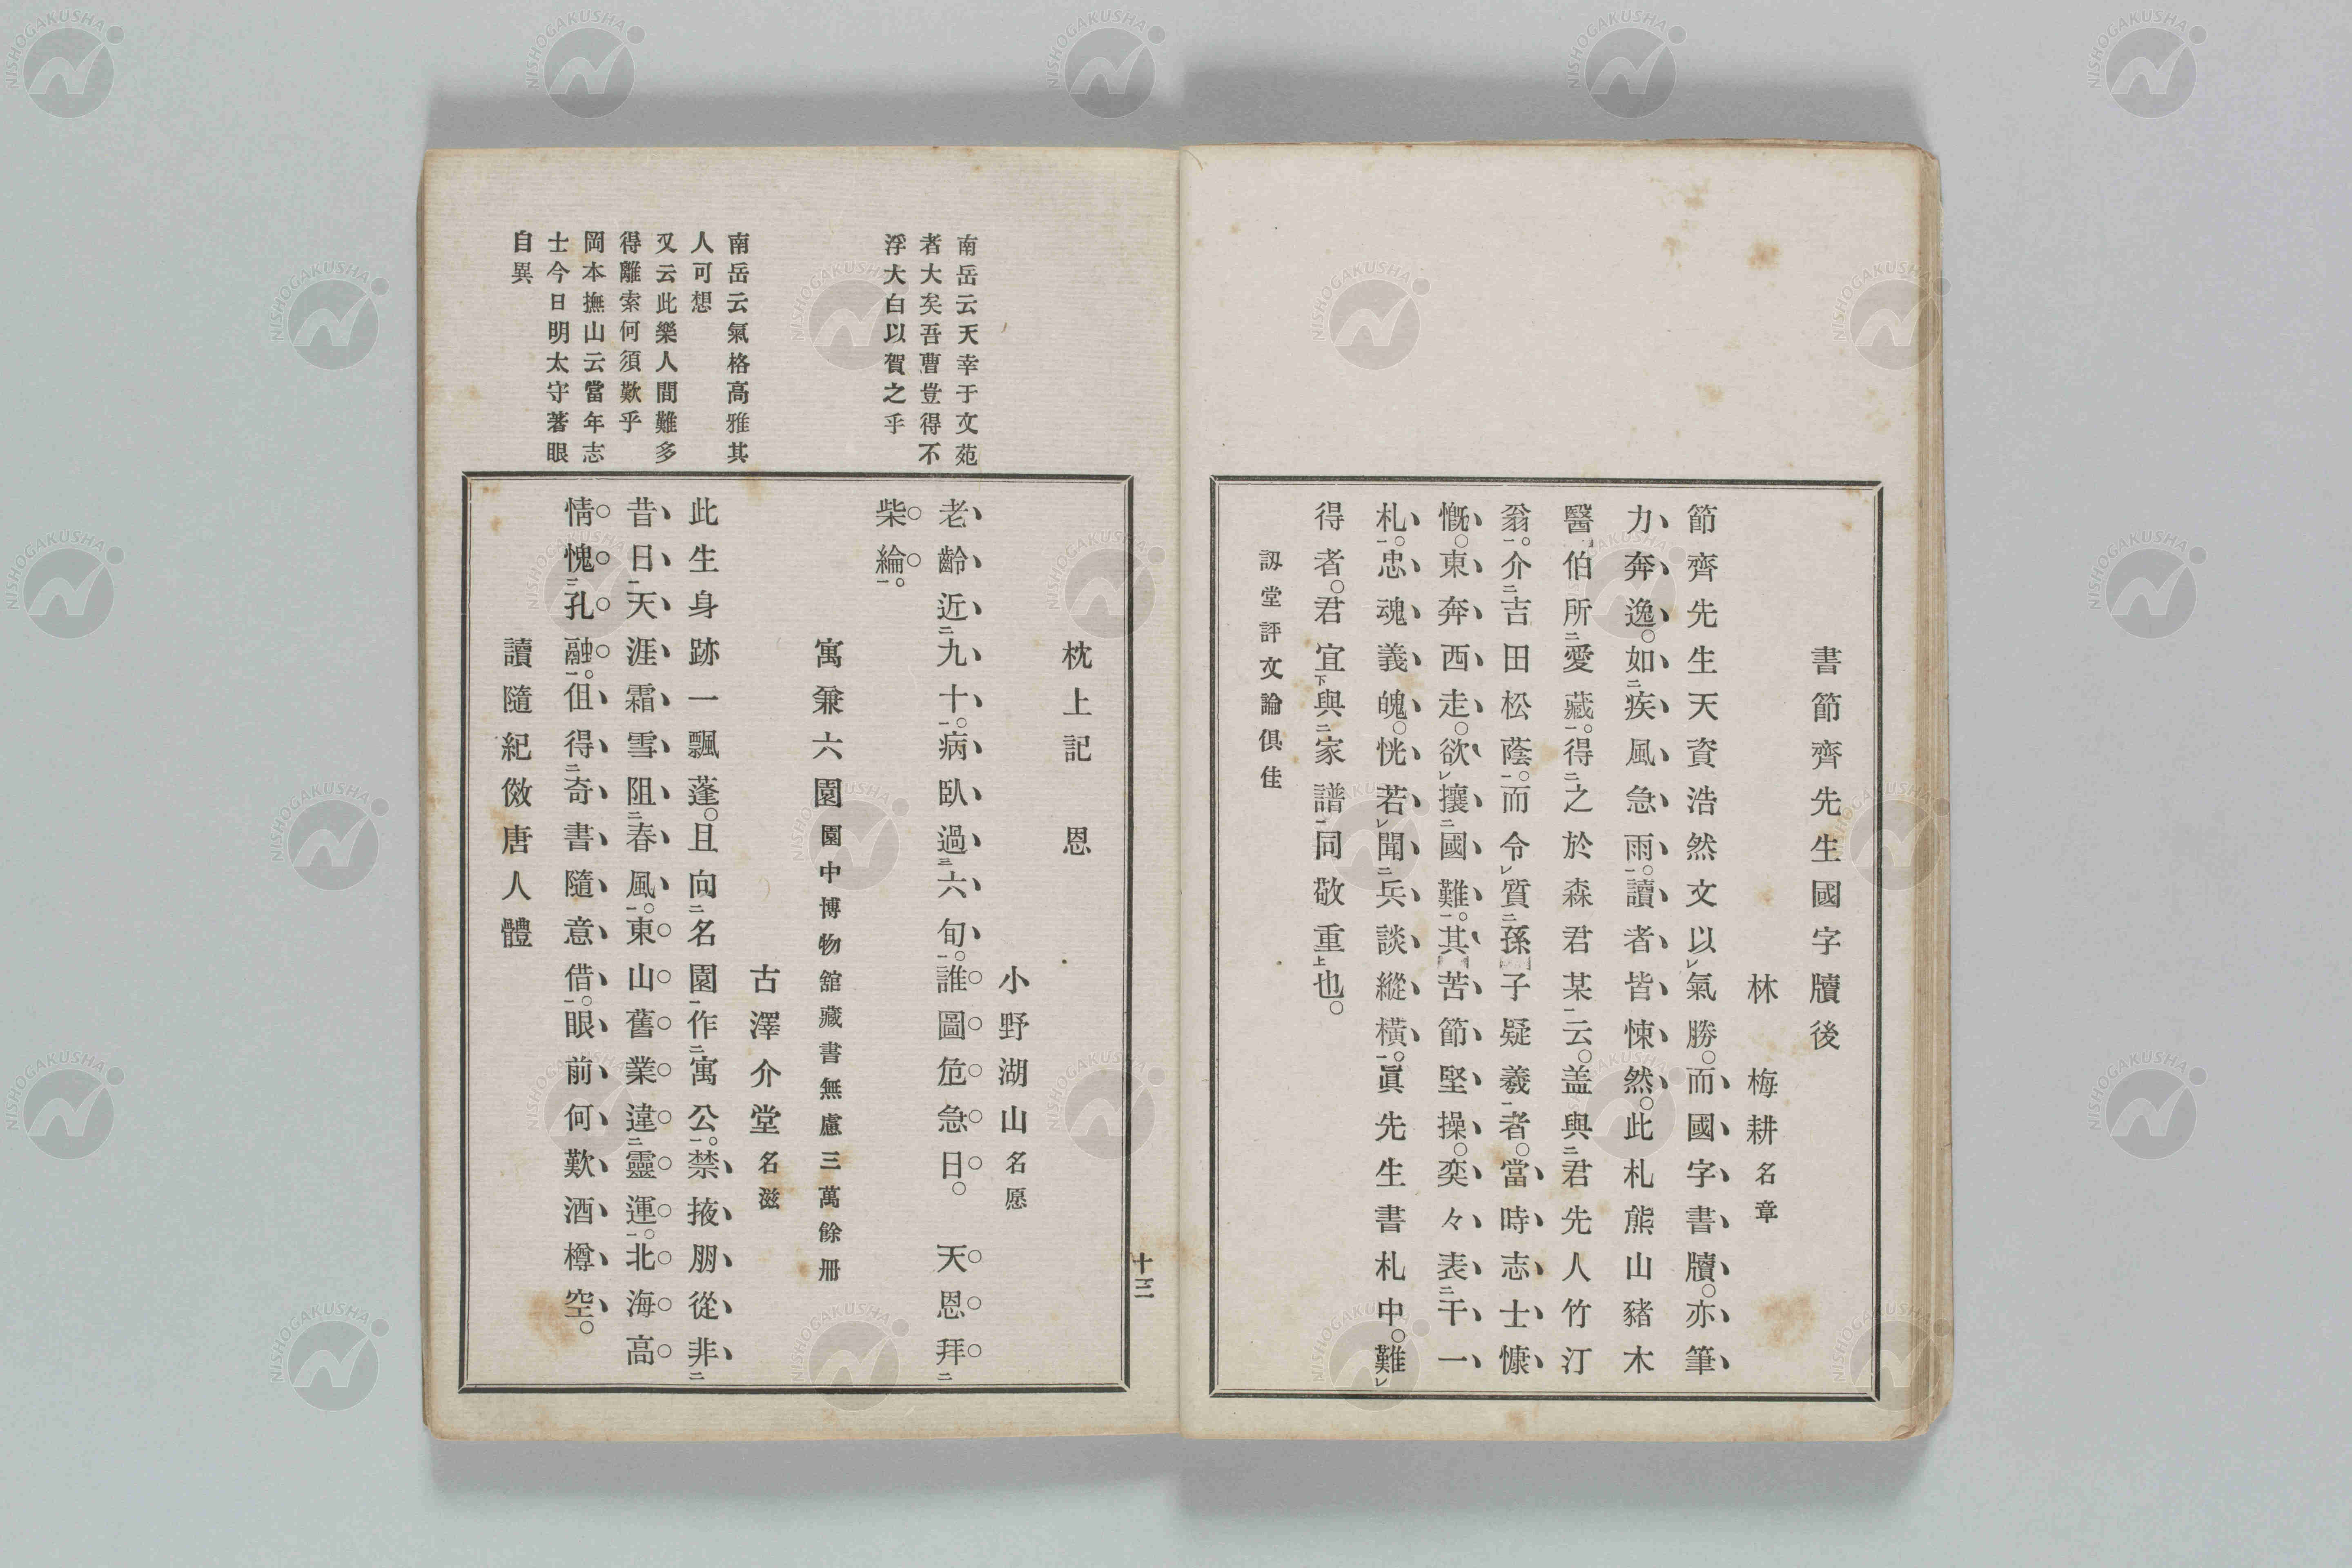 書節齊先生國字牘後
林　梅耕名章
節齊先生天資浩然文以レ氣勝。而國字書牘。亦筆
力奔逸。如二疾風急雨一。讀者皆悚然。此札熊山豬木
醫伯所二愛藏一。得二之於森君某一云。盖與二君先人竹汀
翁一。介二吉田松蔭一。而令レ質二孫子疑義一者。當時志士慷
慨。東奔西走。欲レ攘二國難一。其苦節堅操。奕々表二干一
札一。忠魂義魄。恍若レ聞二兵談縱橫一。眞先生書札中。難レ
得者。君宜下與二家譜一同敬重上也。
訒堂評文論俱佳
南岳云天幸于文苑
者大矣吾曹豈得不
浮大白以賀之乎
南岳云氣格高雅其
人可想
又云此樂人間難多
得離索何須歎乎
岡本撫山云當年志
士今日明太守著眼
自異
十三
枕上記　恩
小野湖山名愿
老齡近二九十一。病臥過三六旬一。誰圖危急日。　天恩拜二
柴綸一。
寓兼六園園中博物舘藏書無慮三萬餘冊
古澤介堂名滋
此生身跡一飄蓬。且向二名園一作二寓公一。禁掖朋從非二
昔日一天涯霜雪阻二春風一。東山舊業違二靈運一。北海高
情愧二孔融一。但得二奇書隨意借一。眼前何歎酒樽空。
讀隨紀倣唐人體
NISHOGAKUSHA